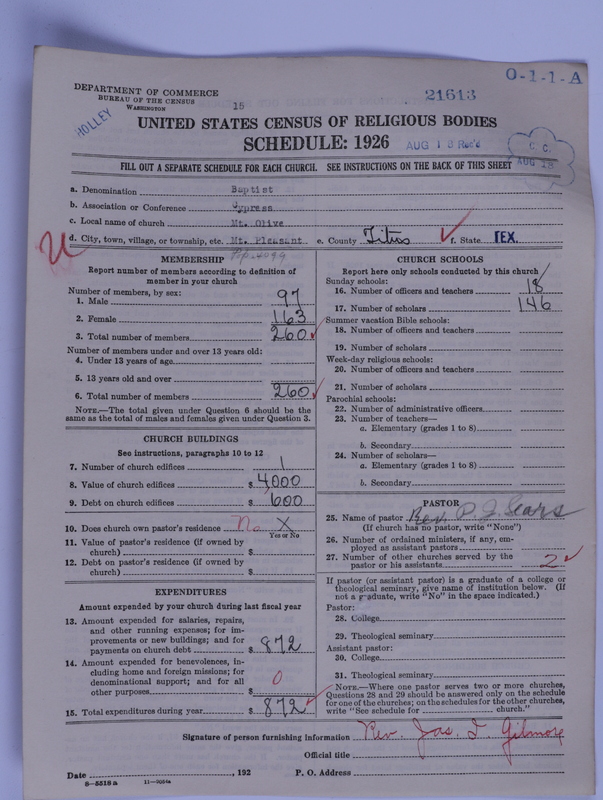 O-1-1-A
DEPARTMENT OF COMMERCE
BUREAU OF THE CENSUS
WASHINGTON
15
21613
HOLLEY
UNITED STATES CENSUS OF RELIGIOUS BODIES
SCHEDULE: 1926
AUG 13 Rec'd
C. C.
AUG 18
FILL OUT A SEPARATE SCHEDULE FOR EACH CHURCH. SEE INSTRUCTIONS ON THE BACK OF THIS SHEET
a. Denomination Baptist
b. Association or Conference Cypress
c. Local name of church Mt. Olive
d. City, town, village, or township, etc. Mt. Pleasant e. County Titus f. State TEX.
Pop. 4099
MEMBERSHIP
Report number of members according to definition of
member in your church
Number of members, by sex:
1. Male 97
2. Female 163
3. Total number of members 260
Number of members under and over 13 years old:
4. Under 13 years of age
5. 13 years old and over
6. Total number of members 260
NOTE.—The total given under Question 6 should be the
same as the total of males and females given under Question 3.
CHURCH BUILDINGS
See instructions, paragraphs 10 to 12
7. Number of church edifices 1
8. Value of church edifices $ 4,000
9. Debt on church edifices $ 600
10. Does church own pastor's residence No X
Yes or No
11. Value of pastor's residence (if owned by
church) $
12. Debt on pastor's residence (if owned by
church) $
EXPENDITURES
Amount expended by your church during last fiscal year
13. Amount expended for salaries, repairs,
and other running expenses; for im-
provements or new buildings; and for
payments on church debt $ 872
14. Amount expended for benevolences, in-
cluding home and foreign missions; for
denominational support; and for all
other purposes $ 0
15. Total expenditures during year $ 872
CHURCH SCHOOLS
Report here only schools conducted by this church
Sunday schools:
16. Number of officers and teachers 18
17. Number of scholars 146
Summer vacation Bible schools:
18. Number of officers and teachers
19. Number of scholars
Week-day religious schools:
20. Number of officers and teachers
21. Number of scholars
Parochial schools:
22. Number of administrative officers
23. Number of teachers—
a. Elementary (grades 1 to 8)
b. Secondary
24. Number of scholars—
a. Elementary (grades 1 to 8)
b. Secondary
PASTOR
25. Name of pastor Rev. P. J. Sears
(If church has no pastor, write "None")
26. Number of ordained ministers, if any, em-
ployed as assistant pastors
27. Number of other churches served by the
pastor or his assistants 2
If pastor (or assistant pastor) is a graduate of a college or
theological seminary, give name of institution below. (If
not a graduate, write "No" in the space indicated.)
Pastor:
28. College
29. Theological seminary
Assistant pastor:
30. College
31. Theological seminary
NOTE.—Where one pastor serves two or more churches,
Questions 28 and 29 should be answered only on the schedule
for one of the churches; on the schedules for the other churches,
write "See schedule for church."
Signature of person furnishing information Rev. Jas. T. Gilmore
Official title
Date , 192 P. O. Address
8—5518a 11—3054a